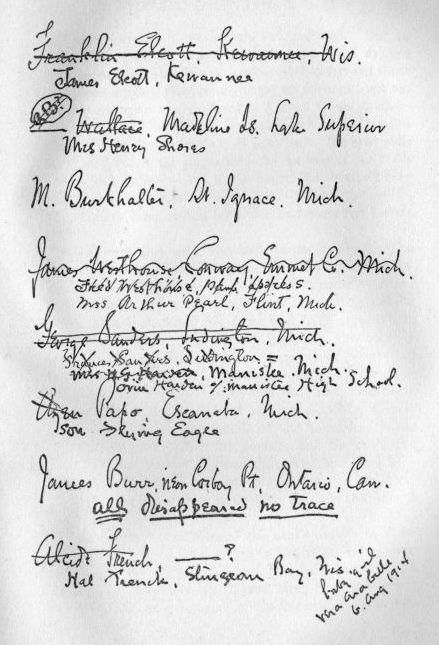 Franklin Elcott, Kewaunee, Wis.
James Elcott, Kewaunee
Wallace, Madeline Is. Lake Superior
Mrs Henry Shores
M. Burkhalter, St. Ignace. Mich.
James Westhouse Conway, Emmet Co. Mich.
Fred Westhouse, same address.
Mrs. Arthur Pearl, Flint, Mich.
George Sanders, Ludington, Mich.
Frances Sanders, Luddington =
Manistee. Mich.
Harden Manistee High School.
Papo, Escanaba, Mich.
son Flying Eagle
James Burr, near Corboy Pt, Ontario, Can.
all disappeared no trace
Alcide French, ——?
Hal French, Sturgeon Bay, Wis
6. Aug 1914